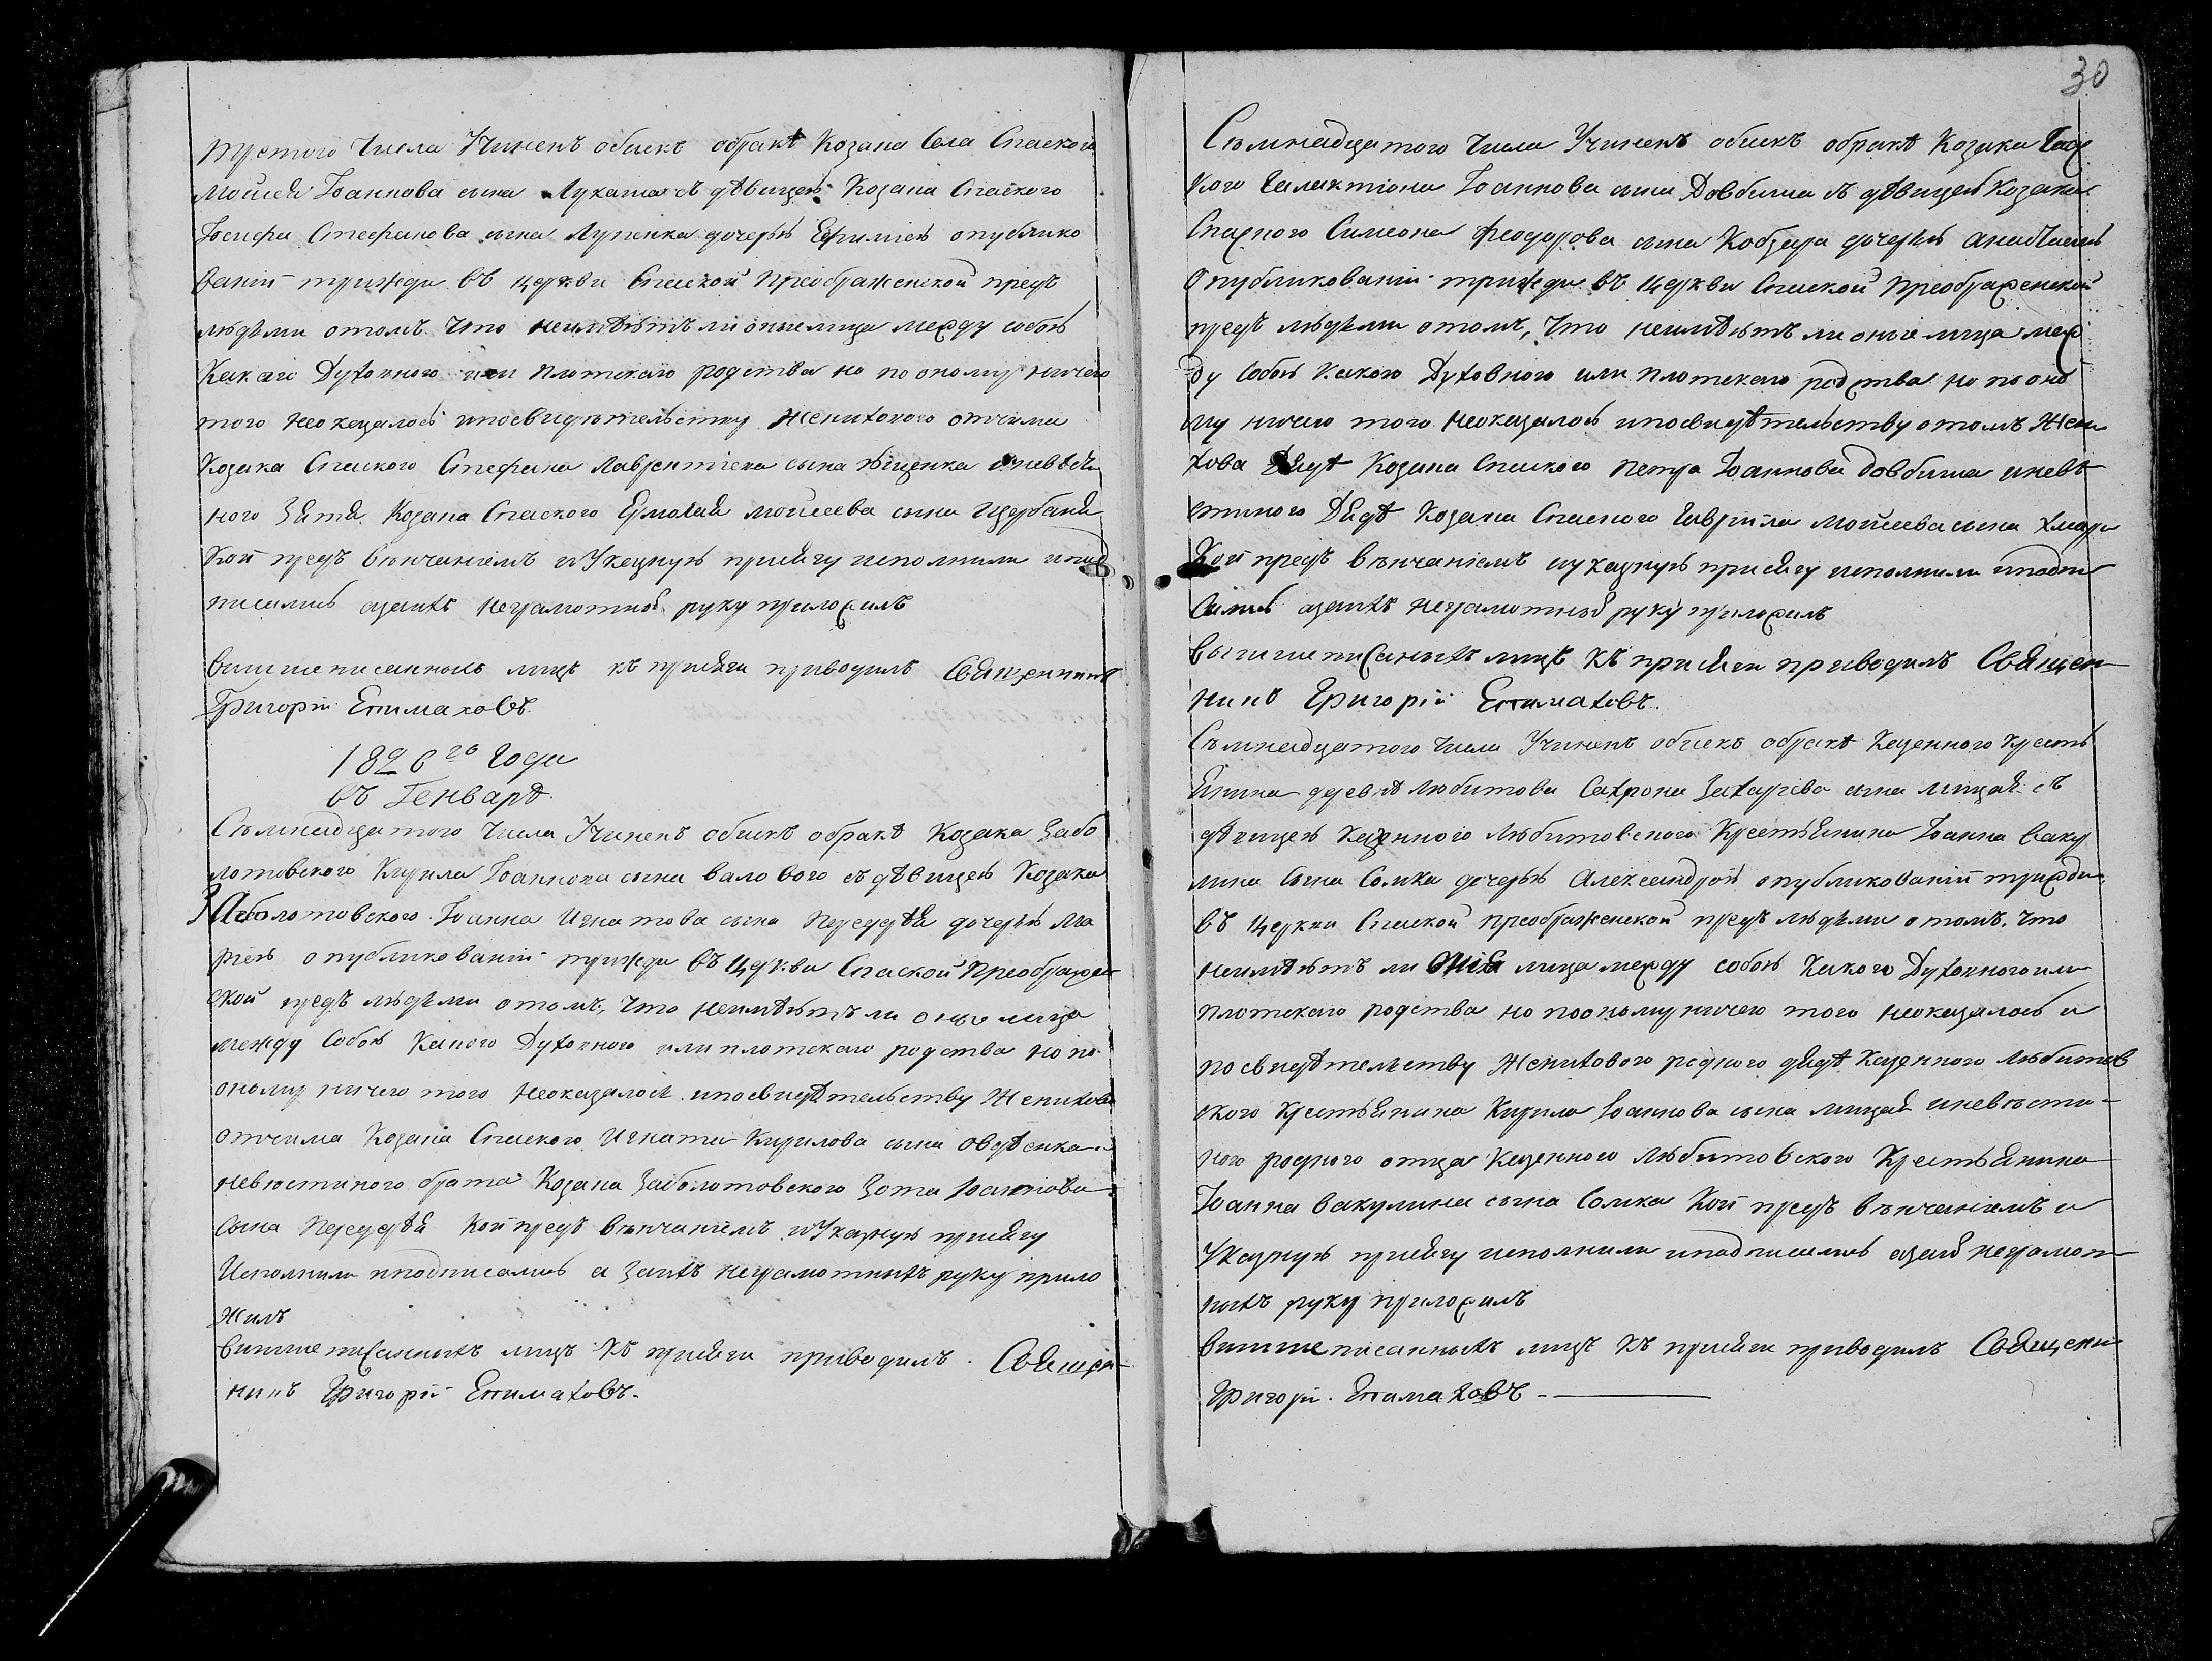 третого Числа Учиненъ обискъ обракѣ Козака Села Спаского
Моисея Іоаннова сына Лукаша съ дѣвицею Козака Спаского
Іосифа Стефанова сына Лупенка дочерью Ефиміею опублико
ваніи трижди въ церкви Спаской Преображенской предъ
людьми отомъ что неимѣютъ ли оные лица между собою
Какаго Духовного или плотскаго родства но по оному ничего
того неоказалось ипосвидѣтельству женихового отчима
Козака Спаского Стефана Лаврентіева сына иневѣст
ного Зятя Козака Спаского Ермолая Моисеева сына Щербани
Кои предъ вѣнчаніемъ и Указную присягу исполнили ипод
писались азаихъ неграмотной руку приложилъ
Вишше писанныхъ лицъ къ присяги приводилъ Священникъ
Григорій Епимаховъ.
1826го Года
въ Генварѣ.
Съмнадцатого Числа Учиненъ обискъ обракѣ Козака Забо
лотовского Кирила Іоаннова сына Валового съ дѣвицею Козака
Заболотовского Іоанна Игнатова сына Передѣя дочерью Ма
ріею опубликованіи трижди въ Церкви Спаской Преображен
ской предъ людьми отомъ, что неимѣютъ ли оные лица
между Собою Какого Духовного или плотскаго родства но по
оному ничего того неоказалось ипосвидѣтельству Женихова
отчима Козака Спаского Игната Кирилова сына Овдѣенка и
невѣстиного брата Козака Заболотовского Зота Іоаннова
сына Передѣя Кои предъ вѣнчаніемъ и Указную присягу
Исполнили иподписались а Заихъ неграмотныхъ руку прило
жилъ
Вишше писанныхъ лицъ къ присяги приводилъ. Священ-
никъ Григорій Епимаховъ.
30
Съмнадцатого Числа Учиненъ обискъ обракѣ Козака Спас
кого Галактіона Іоаннова сына Довбиша съ дѣвицею Козака
Спаского Симеона Феодорова сына Кобзара дочерью
Опубликованіи трижди въ Церкви Спаской Преображенской
предъ людьми отомъ, что неимѣютъ ли оные лица меж
ду собою Какого Духовного или плотскаго родства но по оно
му ничего того неоказалось ипосвидѣтельству отомъ Жени
хова Дядѣ Козака Спаского Петра Іоаннова Довбиша иневѣ
стиного Дядѣ Козака Спаского Гавріила Моисеева сына Хмари
Кои предъ вѣнчаніемъ иуказную присягу исполнили иподпи
сались азаихъ неграмотной руку приложилъ
Вышше писаныхъ лицъ къ присяги приводилъ Священ-
никъ Григорій Епимаховъ.
Съмнадцатого Числа Учиненъ обискъ обракѣ Казенного Кресть
янина деревнѣ Любитова Сахрона Захаріева сына Лицая съ
дѣвицею Казенного Любитовского Крестьянина Іоанна Ваку
лина Сына Сомка дочерью Александрой опубликованіи трижди
въ Церкви Спаской Преображенской предъ людьми отомъ, что
неимѣютъ ли оние лица между собою Какого Духовного или
плотскаго родства но пооному ничего того неоказалось и
посвидѣтельству Женихового родного дядѣ Казенного Любитов
ского Крестьянина Кирила Іоаннова сына Лицая иневѣсти-
ного родного отца Казенного Любитовского Крестьянина
Іоанна Вакулина сына Сомка Кои предъ вѣнчаніемъ и
Указную присягу исполнили иподписались азаихъ неграмот
ныхъ руку приложилъ
Вишше писанныхъ лицъ къ присяги приводилъ Священи
Григорій. Епимаховъ -